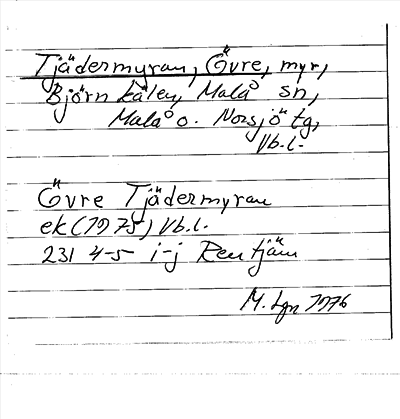 Tjädermyran, Övre, myr,
Björnkälen, Malå sn,
Malå o. Norsjö tg,
Vb.l.
Övre Tjädermyran
ek (1975) Vb.l.
231 4-5 i-j Rentjärn
M. Lgn 1976